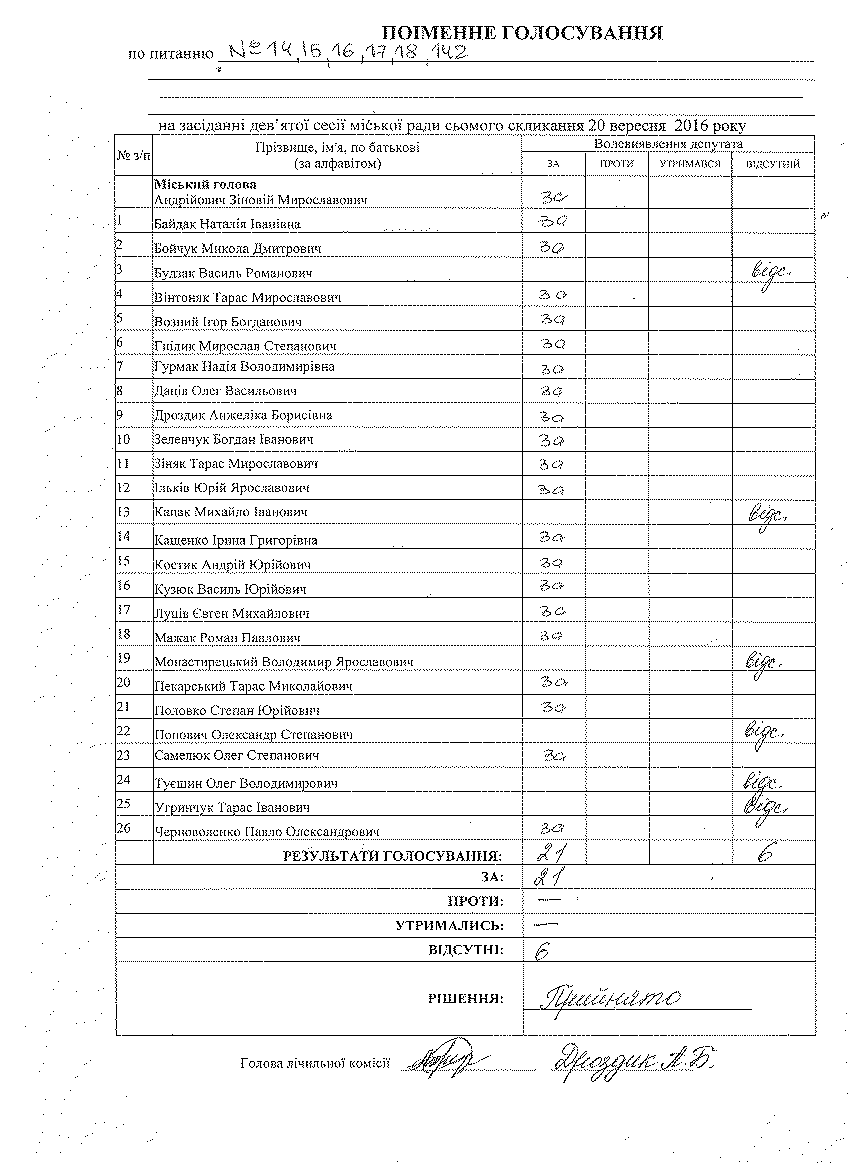 ПОІМЕННЕ ГОЛОСУВАННЯ
по питанню № 14, 15, 16, 17, 18, 142
на засіданні дев’ятої сесії міської ради сьомого скликання 20 вересня 2016 року
№ з/п Прізвище, ім’я, по батькові (за алфавітом) Волевиявлення депутата
ЗА ПРОТИ УТРИМАВСЯ ВІДСУТНІЙ
Міський голова
Андрійович Зіновій Мирославович за
1 Байдак Наталія Іванівна за
2 Бойчук Микола Дмитрович за
3 Будзак Василь Романович відс.
4 Вінтоняк Тарас Мирославович за
5 Возний Ігор Богданович за
6 Гнідик Мирослав Степанович за
7 Гурмак Надія Володимирівна за
8 Даців Олег Васильович за
9 Дроздик Анжеліка Борисівна за
10 Зеленчук Богдан Іванович за
11 Зіняк Тарас Мирославович за
12 Ільків Юрій Ярославович за
13 Кацак Михайло Іванович відс.
14 Кащенко Ірина Григорівна за
15 Костик Андрій Юрійович за
16 Кузюк Василь Юрійович за
17 Луців Євген Михайлович за
18 Мажак Роман Павлович за
19 Монастирецький Володимир Ярославович відс.
20 Пекарський Тарас Миколайович за
21 Половко Степан Юрійович за
22 Попович Олександр Степанович відс.
23 Самелюк Олег Степанович за
24 Туєшин Олег Володимирович відс.
25 Угринчук Тарас Іванович відс.
26 Черноволенко Павло Олександрович за
РЕЗУЛЬТАТИ ГОЛОСУВАННЯ: 21 6
ЗА: 21
ПРОТИ: —
УТРИМАЛИСЬ: —
ВІДСУТНІ: 6
РІШЕННЯ: Прийнято
Голова лічильної комісії Дроздик А.Б.